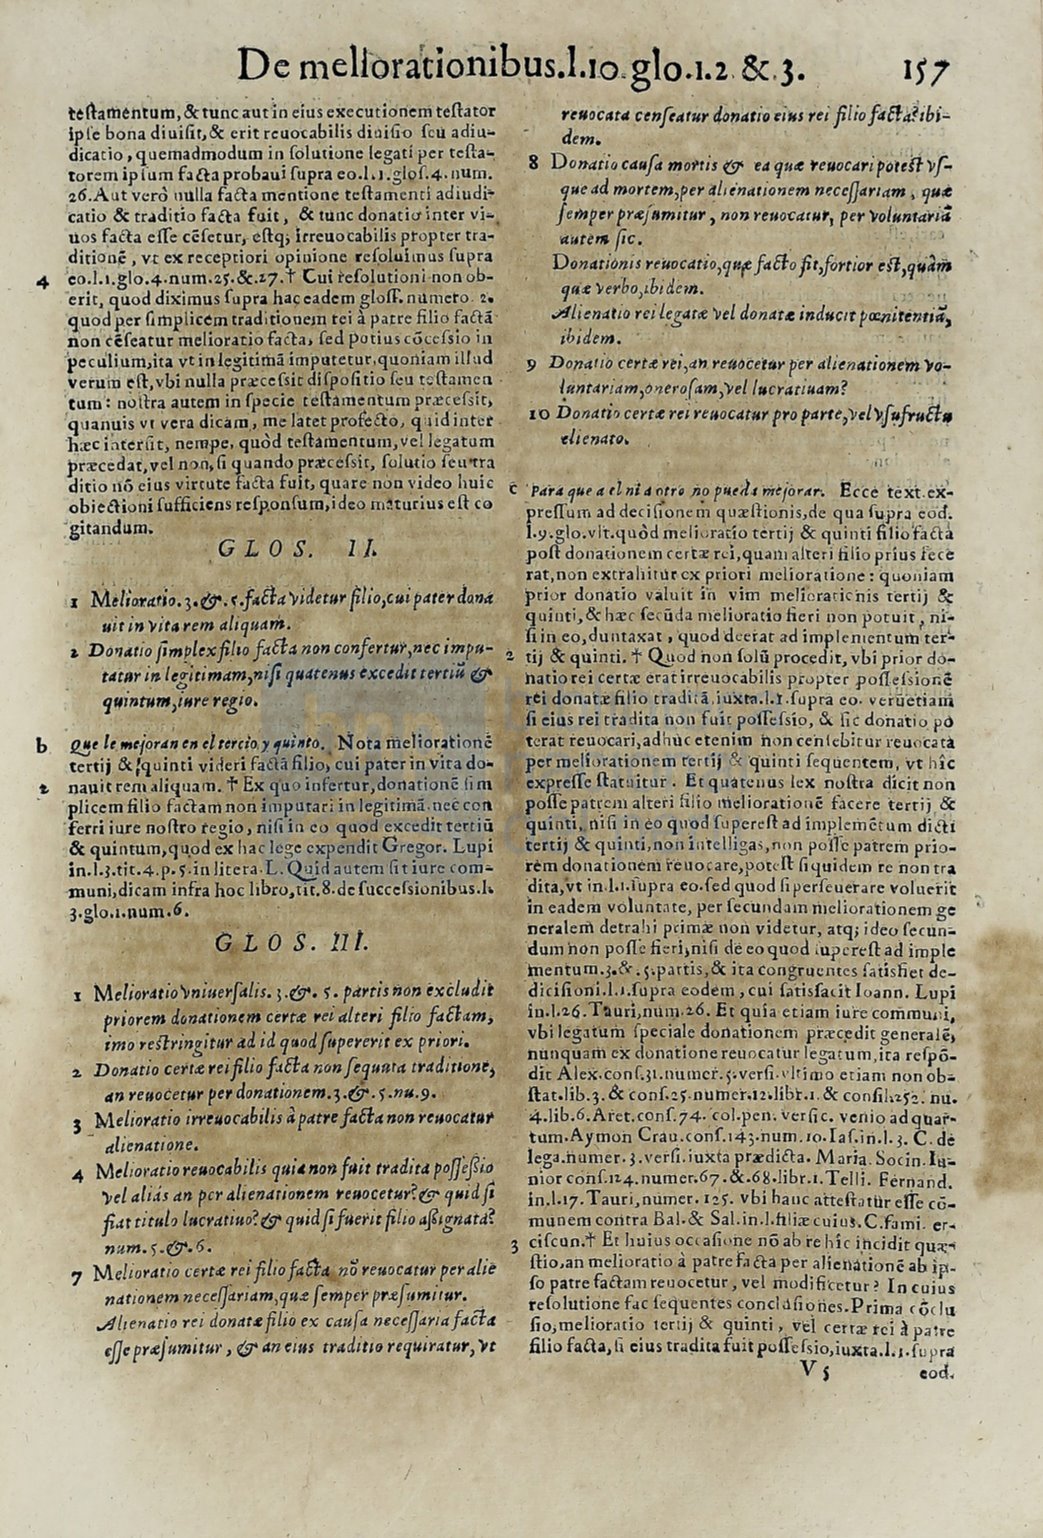 De meliorationibus.l.10.glo.1.2.& 3. 157
testamentum, & tunc aut in eius executionem testator
ipse bona diuisit, & erit reuocabilis diuisio seu adiu-
dicatio, quemadmodum in solutione legati per testa-
torem ipsum facta probaui supra eo.l.1.glos.4.num.
26. Aut verò nulla facta mentione testamenti adiudi-
catio & traditio facta fuit, & tunc donatio inter vi-
uos facta esse cẽsetur, estq; irreuocabilis propter tra-
ditionẽ, vt ex receptiori opinione resoluimus supra
4 eo.l.1.glo.4.num.25.&.27.† Cui resolutioni non ob-
erit, quod diximus supra hac eadem gloss. numero 2.
quod per simplicem traditionem rei à patre filio factã
non cẽseatur melioratio facta, sed potius cõcessio in
peculium, ita vt in legitimã imputetur, quoniam illud
verum est, vbi nulla præcessit dispositio seu testamen
tum: nostra autem in specie testamentum præcessit,
quanuis vt vera dicam, me latet profecto, quid inter
hæc intersit, nempe, quòd testamentum, vel legatum
præcedat, vel non, si quando præcessit, solutio seu tra
ditio nõ eius virtute facta fuit, quare non video huic
obiectioni sufficiens responsum, ideo maturius est co
gitandum.
GLOS. II.
1 Melioratio.3.&.5. facta videtur filio, cui pater dona
uit in vita rem aliquam.
2 Donatio simplex filio facta non confertur, nec impu-
tatur in legitimam, nisi quatenus excedit tertiũ &
quintum, iure regio.
b Que le mejoran en el tercio y quinto. Nota melioratione᷈
tertij & quinti videri factã filio, cui pater in vita do-
2 nauit rem aliquam. † Ex quo infertur, donationẽ sim
plicem filio factam non imputari in legitimã, nec con
ferri iure nostro regio, nisi in eo quod excedit tertiũ
& quintum, quod ex hac lege expendit Gregor. Lupi
in.l.3.tit.4.p.5.in litera.L. Quid autem sit iure com-
muni, dicam infra hoc libro, tit.8.de successionibus.l.
3.glo.1.num.6.
GLOS. III.
1 Melioratio vniuersalis.3.&.5. partis non excludit
priorem donationem certæ rei alteri filio factam,
imo restringitur ad id quod supererit ex priori.
2 Donatio certæ rei filio facta non sequuta traditione,
an reuocetur per donationem.3.&.5.nu.9.
3 Melioratio irreuocabilis à patre facta non reuocatur
alienatione.
4 Melioratio reuocabilis quia non fuit tradita possessio
vel aliàs an per alienationem reuocetur? & quid si
fiat titulo lucratiuo? & quid si fuerit filio assignata?
num.5.&.6.
7 Melioratio certæ rei filio facta nõ reuocatur per alie
nationem necessariam, quæ semper præsumitur.
Alienatio rei donatæ filio ex causa necessaria facta
esse præsumitur, & an eius traditio requiratur, vt
reuocata censeatur donatio eius rei filio facta? ibi-
dem.
8 Donatio causa mortis & ea quæ reuocari potest vs-
que ad mortem, per alienationem necessariam, quæ
semper præsumitur, non reuocatur, per voluntariã
autem sic.
Donationis reuocatio, quæ facto fit, fortior est, quàm
quæ verbo, ibidem.
Alienatio rei legatæ vel donatæ inducit pœnitentiã,
ibidem.
9 Donatio certæ rei, an reuocetur per alienationem vo-
luntariam, onerosam, vel lucratiuam?
10 Donatio certæ rei reuocatur pro parte, vel vsufructu
elienato.
c Para que a el ni a otro no pueda mejorar. Ecce text.ex-
pressum ad decisionem quæstionis, de qua supra eod.
l.9.glo.vlt. quòd melioratio tertij & quinti filio facta
post donationem certæ rei, quam alteri filio prius fece
rat, non extrahitur ex priori melioratione: quoniam
prior donatio valuit in vim meliorationis tertij &
quinti, & hæc secũda melioratio fieri non potuit, ni-
si in eo, duntaxat, quod deerat ad implementum ter-
2 tij & quinti. † Quod non solũ procedit, vbi prior do-
natio rei certæ erat irreuocabilis propter possessionẽ
rei donatæ filio traditã, iuxta.l.1.supra eo. verũetiam
si eius rei tradita non fuit possessio, & sic donatio po
terat reuocari, adhuc etenim non censebitur reuocata
per meliorationem tertij & quinti sequentem, vt hîc
expresse statuitur. Et quatenus lex nostra dicit non
posse patrem alteri filio meliorationẽ facere tertij &
quinti, nisi in eo quod superest ad implemẽtum dicti
tertij & quinti, non intelligas, non posse patrem prio-
rem donationem reuocare, potest siquidem re non tra
dita, vt in.l.1.supra eo. sed quod si perseuerare voluerit
in eadem voluntate, per secundam meliorationem ge
neralem detrahi primæ non videtur, atq; ideo secun-
dum non posse fieri, nisi de eo quod superest ad imple
mentum.3.&.5.partis, & ita congruentes satisfiet de-
dicisioni.l.1.supra eodem, cui satisfacit Ioann. Lupi
in.l.26.Tauri, num.26. Et quia etiam iure communi,
vbi legatum speciale donationem præcedit generalẽ,
nunquam ex donatione reuocatur legatum, ita respõ-
dit Alex.cons.31.numer.5.versi.vltimo etiam non ob-
stat.lib.3.& cons.25.numer.12.libr.1.& consil.252. nu.
4.lib.6. Aret.cons.74. col.pen. versic. venio ad quar-
tum. Aymon Crau.cons.143.num.10. Ias.in.l.3. C. de
lega.numer.3.versi.iuxta prædicta. Maria. Socin. Iu-
nior cons.124.numer.67.&.68.libr.1. Telli. Fernand.
in.l.17.Tauri, numer.125. vbi hanc attestatur esse cõ-
munem contra Bal.& Sal.in.l.filiæ cuius.C.fami. er-
3 ciscun.† Et huius occasione nõ ab re hîc incidit quæ-
stio, an melioratio à patre facta per alienationẽ ab ip-
so patre factam reuocetur, vel modificetur? In cuius
resolutione fac sequentes conclusiones. Prima cõclu
sio, melioratio tertij & quinti, vel certæ rei à patre
filio facta, si eius tradita fuit possessio, iuxta.l.1.supra
V 5 eod.